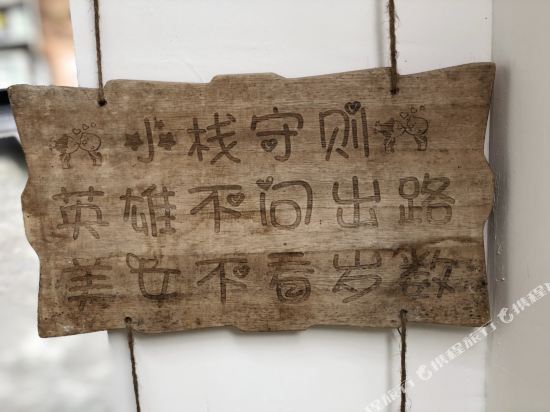 小栈守则
英雄不问出路
美女不看岁数
携程旅行